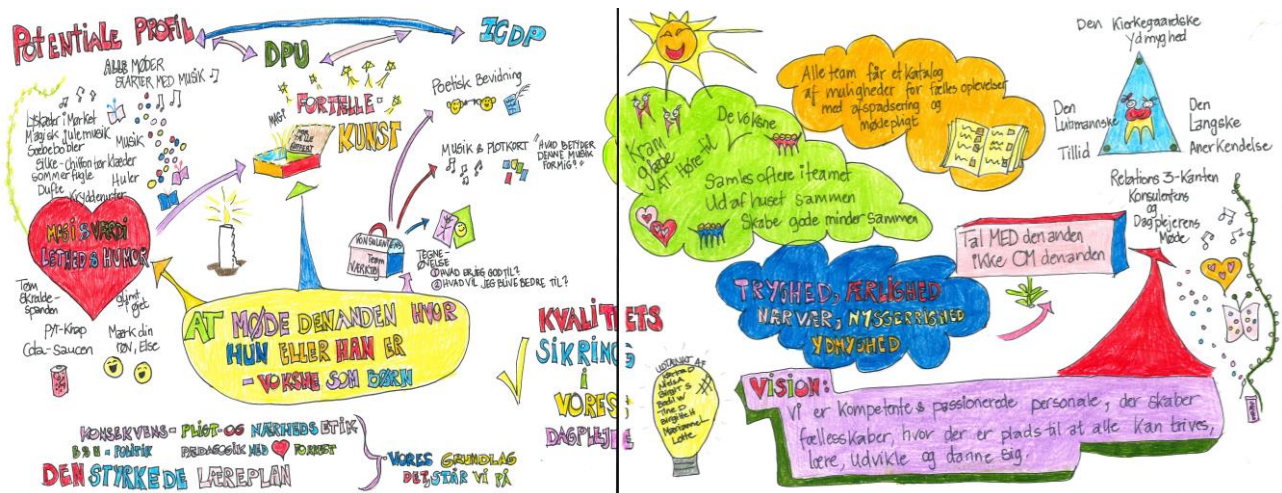 POTENTIALE PROFIL
DPU
ICDP
ALLE MØDER
STARTER MED MUSIK
Lyskæder i Mørket
Magisk julemusik
Sæbebobler
Silke-Chiffon tørklæder
Sommerfugle
Dufte
Krydderurter
Musik
Huler
MAGI
FORTÆLLE-
KUNST
Poetisk Bevidning
MUSIK & PLOTKORT
"HVAD BETYDER
DENNE MUSIK
FOR MIG?"
MAGI & VÆRDI
LETHED & HUMOR
KONSULENTENS
TEAM
VÆRKTØJ
TEGNE-
ØVELSE
① HVAD ER JEG GOD TIL?
② HVAD VIL JEG BLIVE BEDRE TIL?
Tøm
skralde-
spanden
glimt
i øjet
PYT-Knap
Cola-saucen
Mærk din
røv, Else
AT MØDE DEN ANDEN HVOR
HUN ELLER HAN ER
- VOKSNE SOM BØRN
KVALITETS
SIKRING
i
VORES
DAGPLEJE
KONSEKVENS- PLIGT-OG NÆRHEDS ETIK
BØRN - POLITIK PÆDAGOGIK MED FORREST
DEN STYRKEDE LÆREPLAN
VORES GRUNDLAG
DET, STÅR VI PÅ
Kram
glæde
AT Høre til
De voksne
Samles oftere i teamet
Ud af huset sammen
Skabe gode minder sammen
Alle team får et katalog
af muligheder for fælles oplevelser
med afspadsering og
mødepligt
Den Kierkegaardske
Ydmyghed
Den
Luhmannske
Tillid
Den
Langske
Anerkendelse
Relations 3-Kanten
Konsulentens
og
Dagplejerens
Møde
Tal MED den anden
ikke OM den anden
TRYGHED, ÆRLIGHED
NÆRVÆR, NYSGERRIGHED
YDMYGHED
UDTÆNKT AF
Birgit S
Bodil W
Tine D
Birgitte H
Marianne L
Lotte
VISION:
Vi er kompetente & passionerede personale, der skaber
fællesskaber, hvor der er plads til at alle kan trives,
lære, udvikle og danne sig.